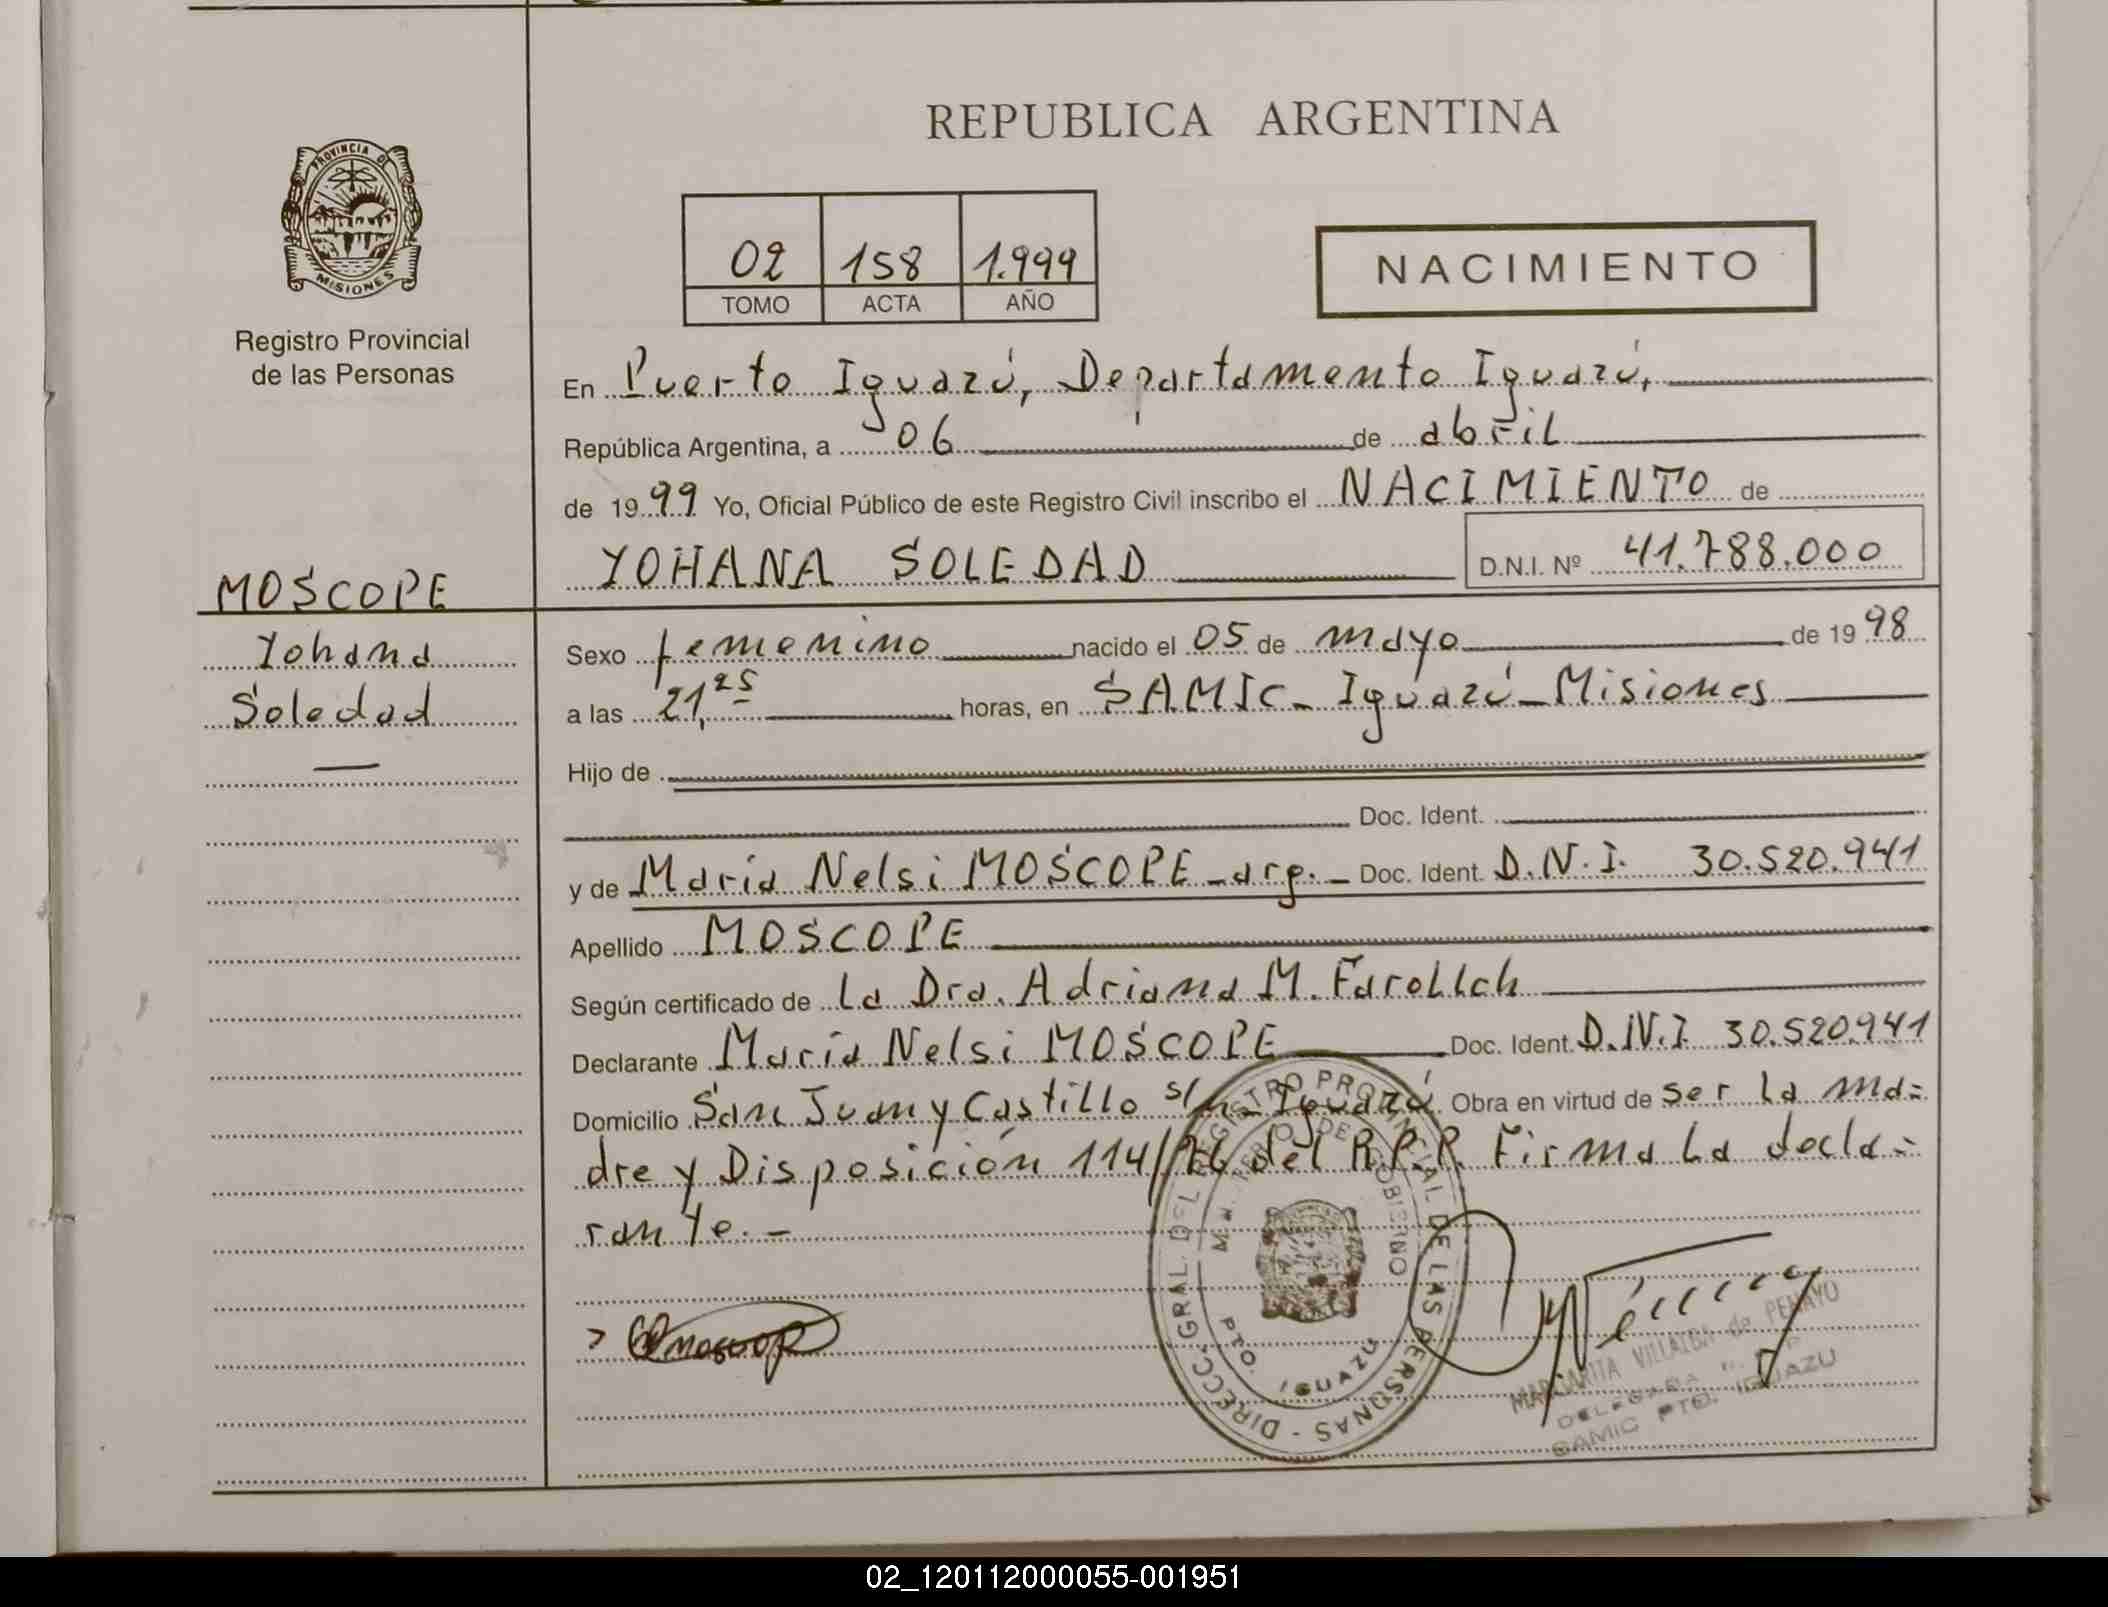 REPUBLICA ARGENTINA
PROVINCIA DE
MISIONES
Registro Provincial
de las Personas
02 158 1.999
TOMO ACTA AÑO
NACIMIENTO
En Puerto Iguazú, Departamento Iguazú,
República Argentina, a 06 de abril
de 1999 Yo, Oficial Público de este Registro Civil inscribo el NACIMIENTO de
YOHANA SOLEDAD D.N.I. Nº 41.788.000
MOSCOPE
Yohana
Soledad
Sexo femenino nacido el 05 de mayo de 1998
a las 21,25 horas, en SAMIC - Iguazú - Misiones
Hijo de
Doc. Ident.
y de María Nelsi MOSCOPE - arg. - Doc. Ident. D.N.I. 30.520.941
Apellido MOSCOPE
Según certificado de la Dra. Adriana M.
Declarante María Nelsi MOSCOPE Doc. Ident. D.N.I. 30.520.941
Domicilio San Juan y Castillo s/n - Iguazú. Obra en virtud de ser la ma=
dre y Disposición 114/ del R.P.P. Firma la decla=
rante. -
DIRECC. GRAL. DEL REGISTRO PROVINCIAL DE LAS PERSONAS
MINISTERIO DE GOBIERNO
PTO. IGUAZU
MARGARITA VILLALBA de PENAYO
DELEGADA
SAMIC PTO. IGUAZU
02_120112000055-001951